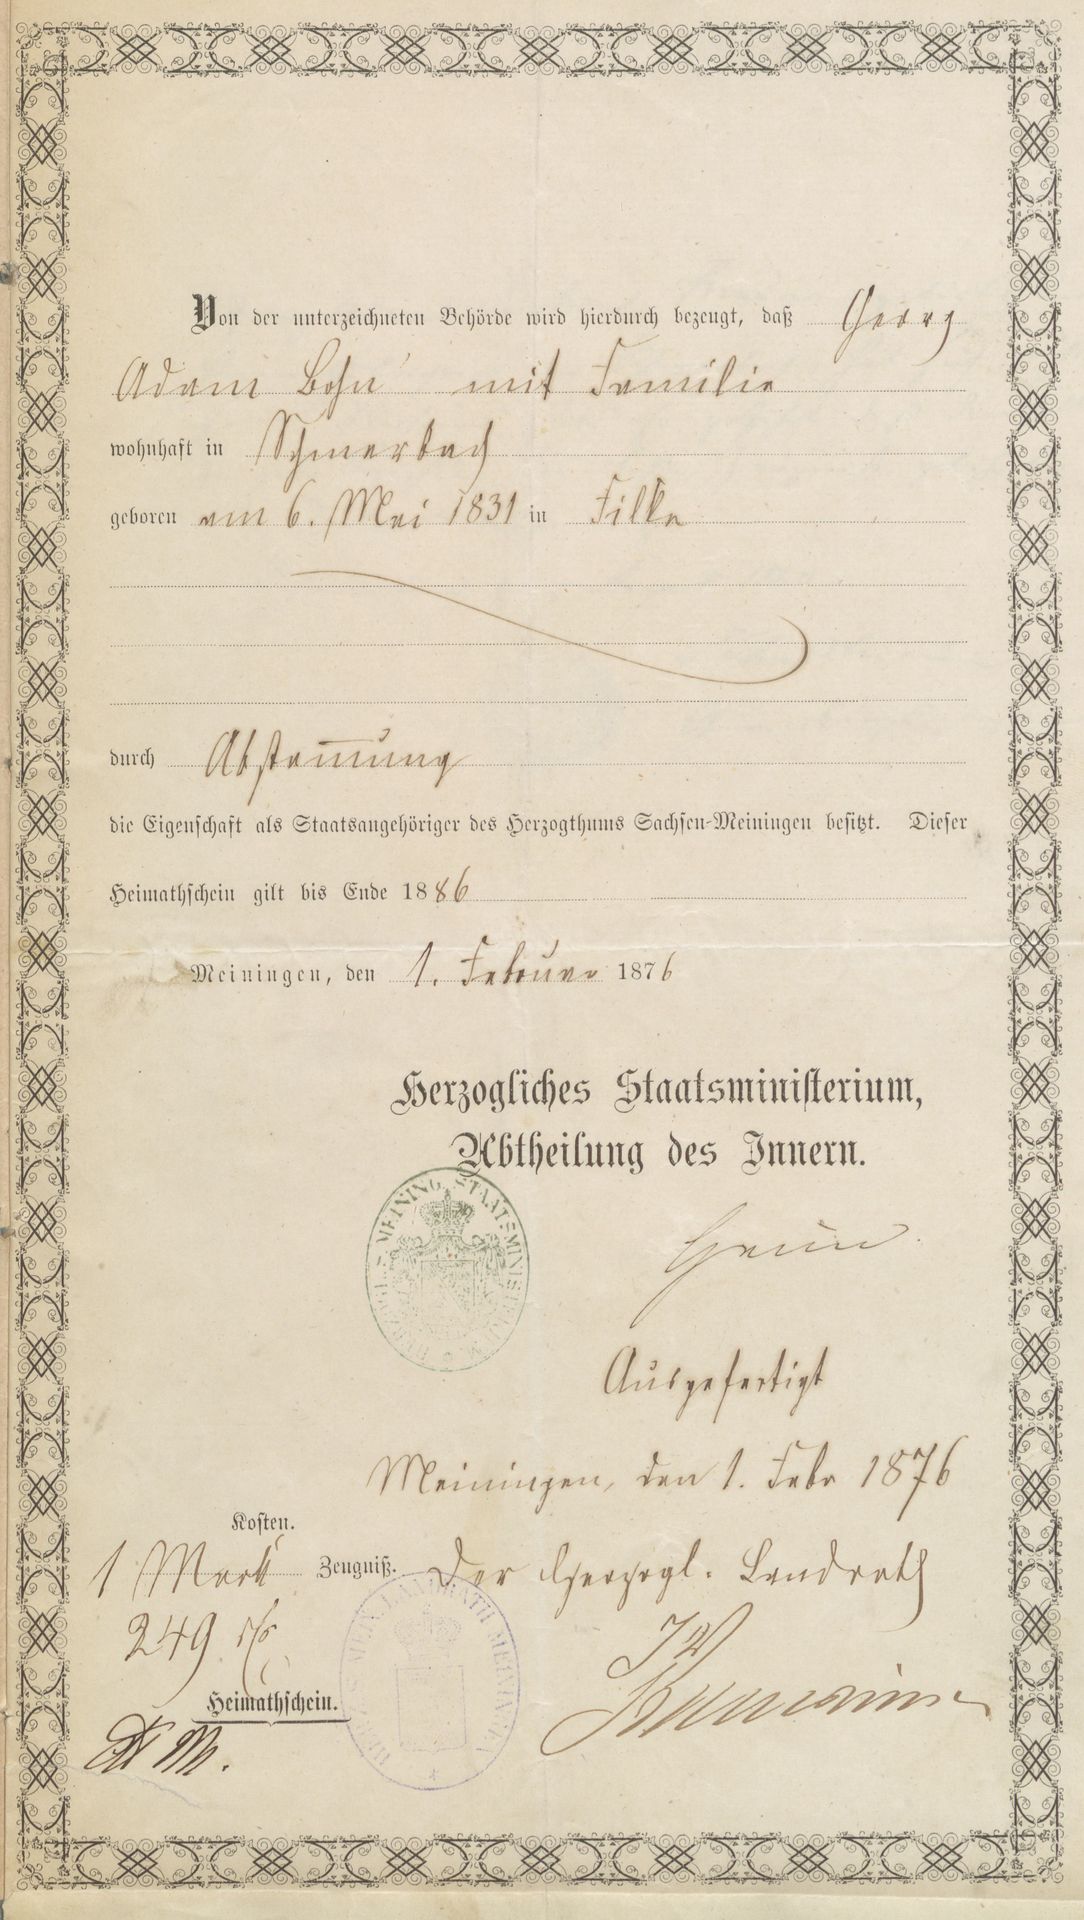 Von der unterzeichneten Behörde wird hierdurch bezeugt, daß Georg
Adam Bohn mit Familie
wohnhaft in Schmerbach
geboren am 6. Mai 1831 in Filke
durch Abstam̄ung
die Eigenschaft als Staatsangehöriger des Herzogthums Sachsen-Meiningen besitzt. Dieser
Heimathschein gilt bis Ende 1886
Meiningen, den 1. Februar 1876
Herzogliches Staatsministerium,
Abtheilung des Innern.
HERZOGL. S. MEINING. STAATSMINISTERIUM
Ausgefertigt
Meiningen, den 1. Febr 1876
Kosten.
1 Mark Zeugniß. Der Herzogl. Landrath
249
JV
Heimathschein.
LANDRATH MEININGEN